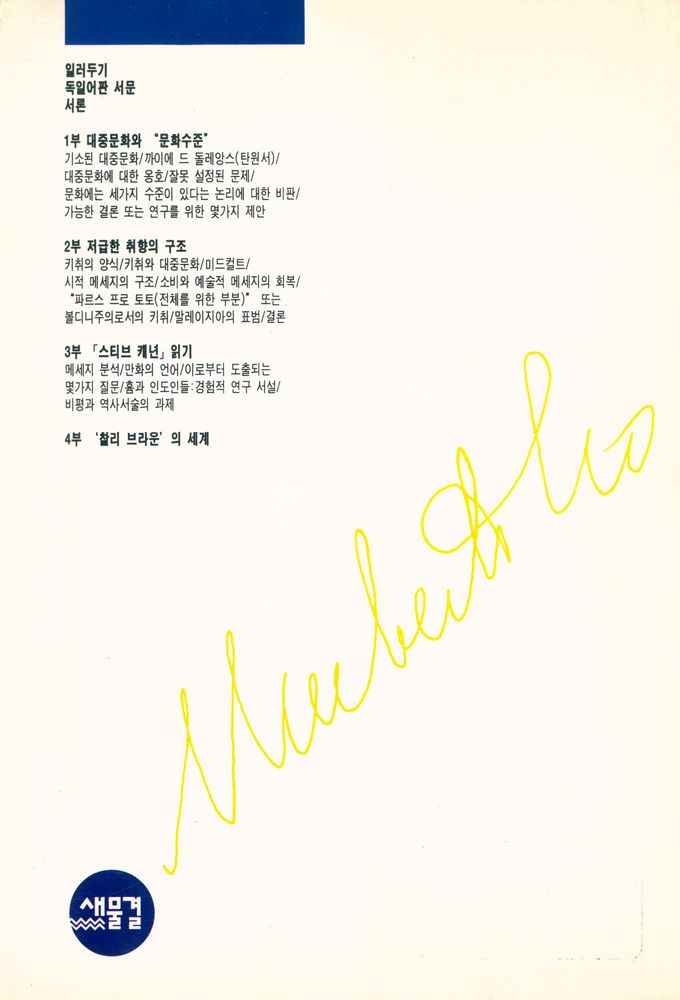 일러두기
독일어판 서문
서론
1부 대중문화와 “문화수준”
기소된 대중문화/까이에 드 돌레앙스(탄원서)/
대중문화에 대한 옹호/잘못 설정된 문제/
문화에는 세가지 수준이 있다는 논리에 대한 비판/
가능한 결론 또는 연구를 위한 몇가지 제안
2부 저급한 취향의 구조
키취의 양식/키취와 대중문화/미드컬트/
시적 메세지의 구조/소비와 예술적 메세지의 회복/
“파르스 프로 토토(전체를 위한 부분)” 또는
볼디니주의로서의 키취/말레이지아의 표범/결론
3부 「스티브 캐년」 읽기
메세지 분석/만화의 언어/이로부터 도출되는
몇가지 질문/흄과 인도인들:경험적 연구 서설/
비평과 역사서술의 과제
4부 ‘찰리 브라운’의 세계
새물결